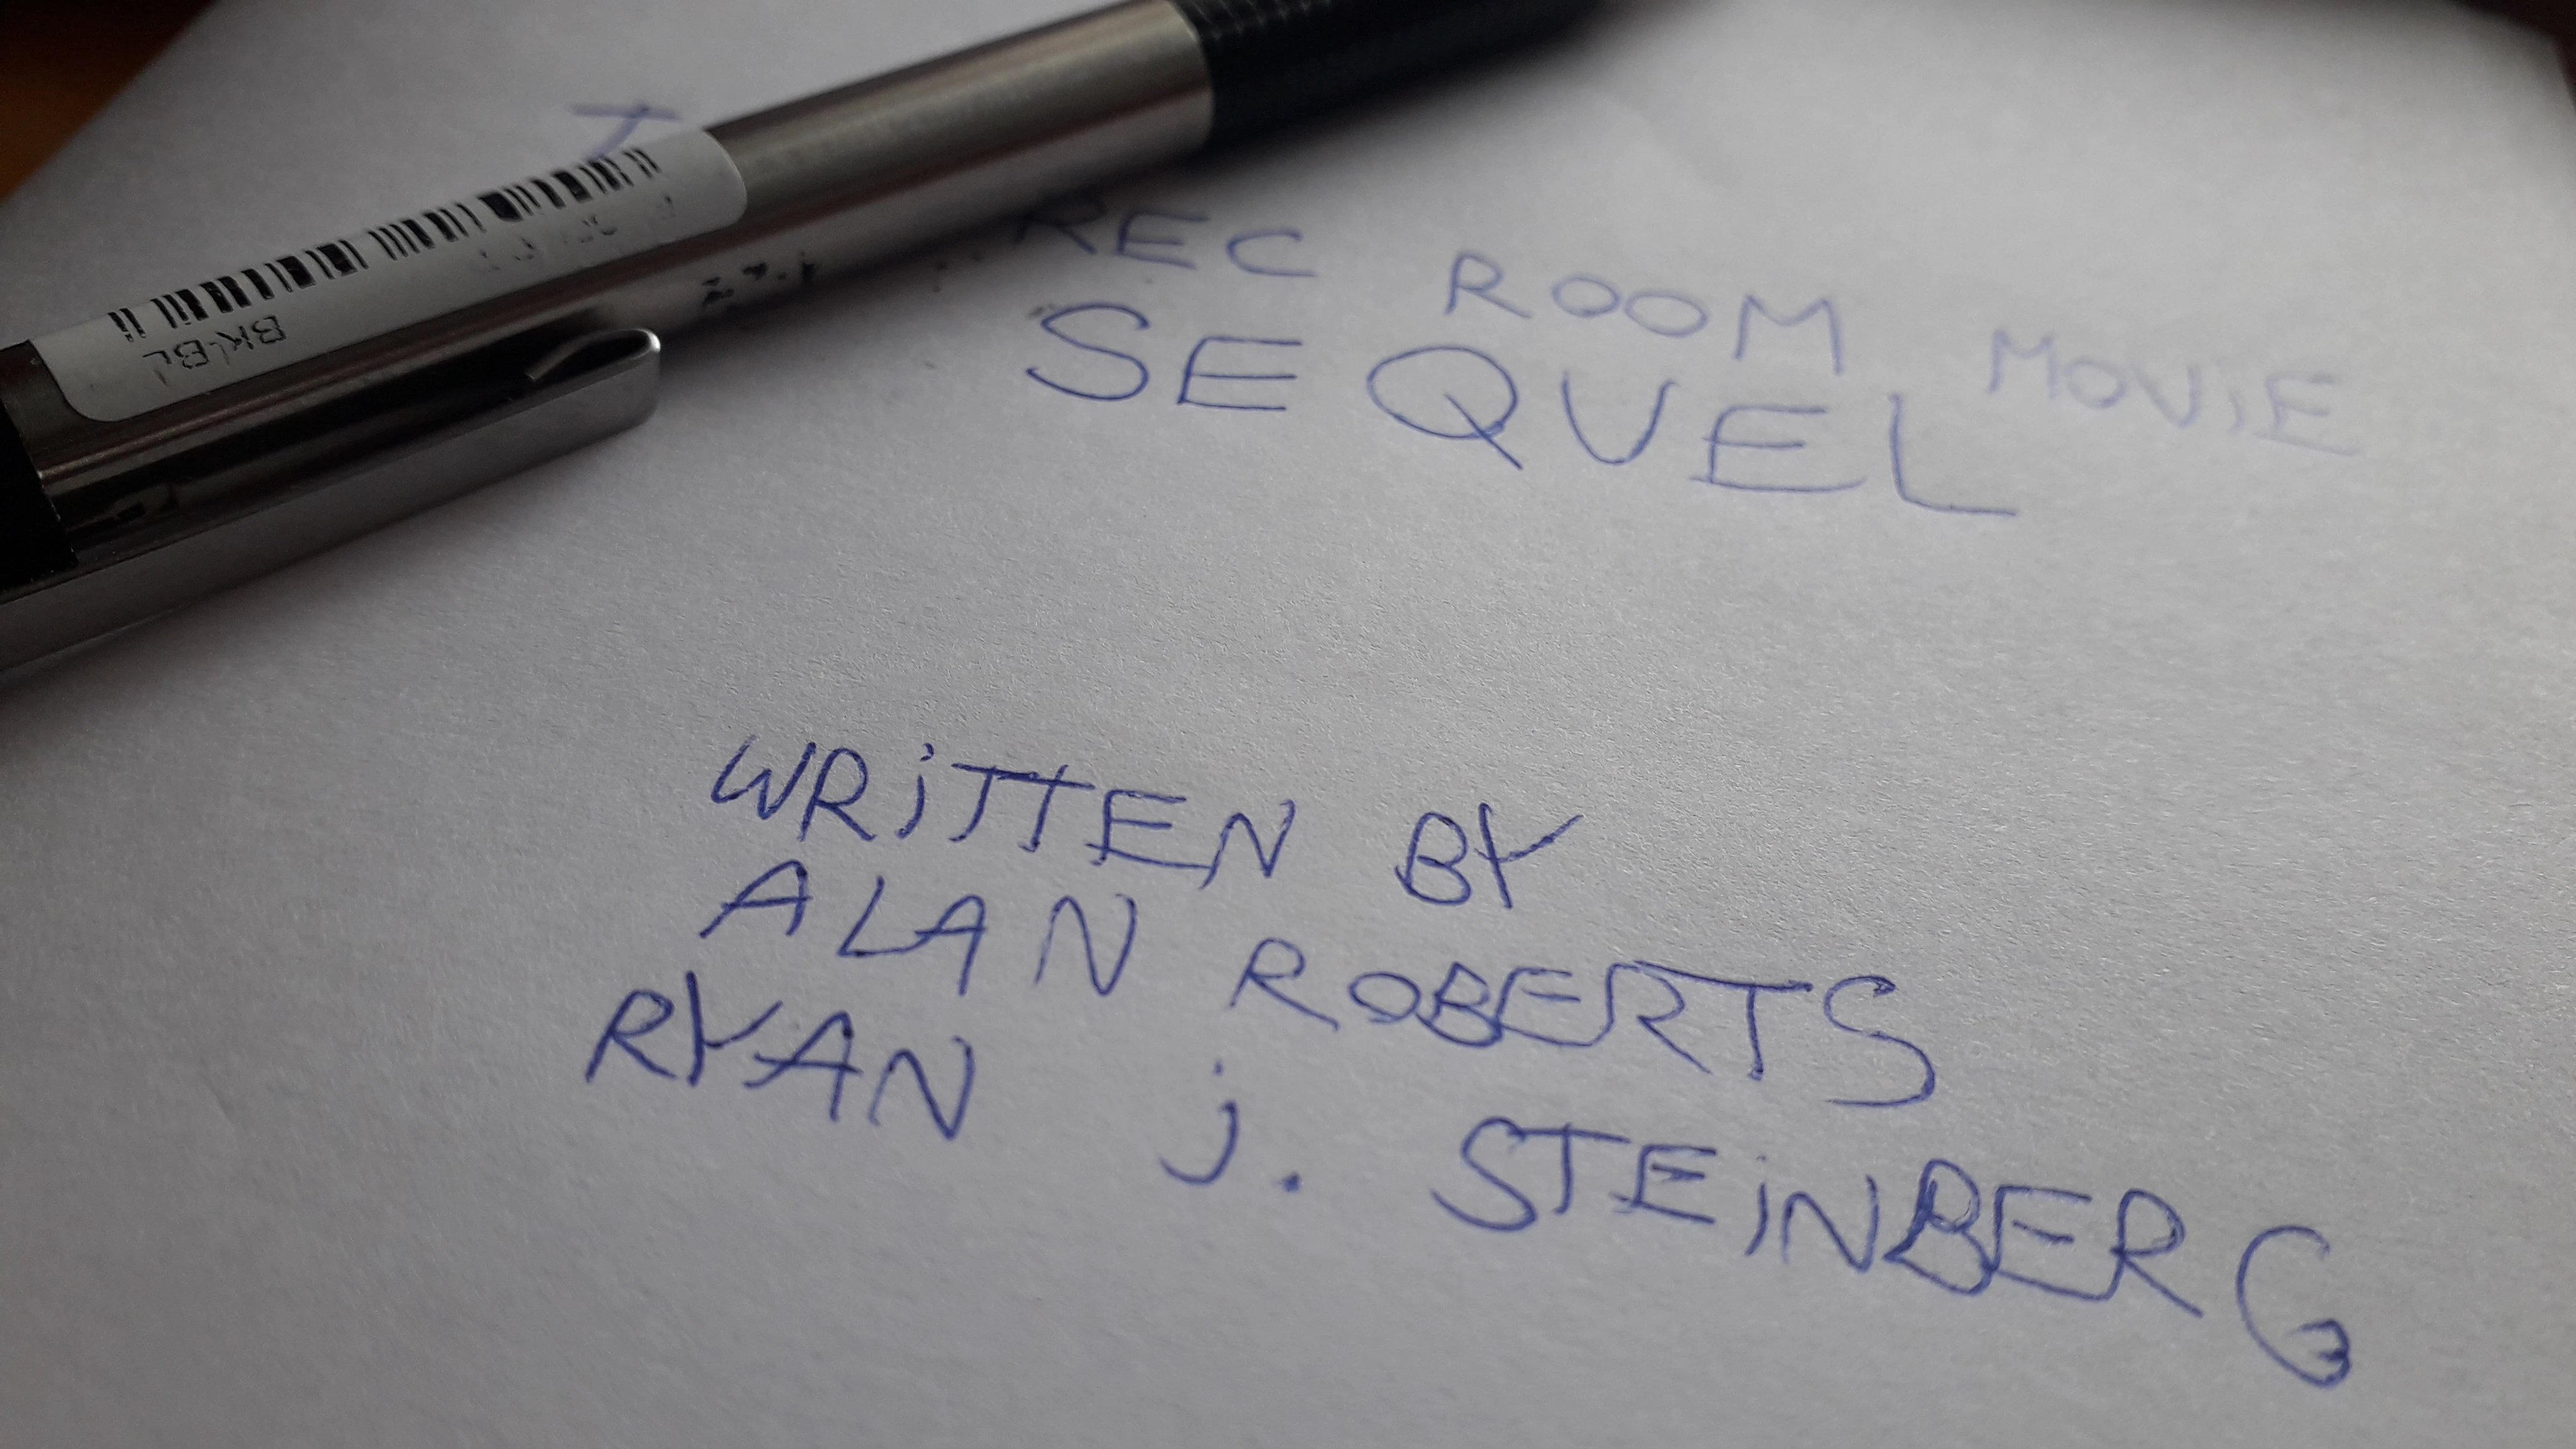 T
REC ROOM MOViE
SEQUEL
WRiTTEN BY
ALAN ROBERTS
RYAN j. STEiNBERG
BK-BL